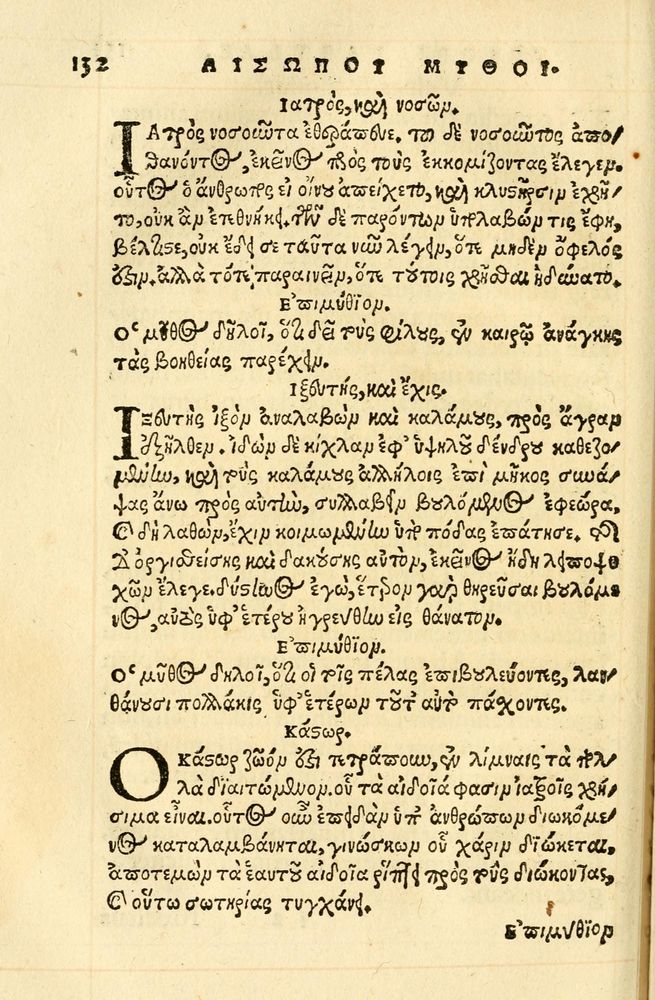 132 ΑΙΣΩΠΟΥ ΜΥΘΟΙ.
Ἰατρὸς, καὶ νοσῶν.
ΙΑτρὸς νοσοῦντα ἐθεράπευε. τοῦ δὲ νοσοῦντος ἀπο-
θανόντος, ἐκεῖνος πρὸς τοὺς ἐκκομίζοντας ἔλεγεν.
οὗτος ὁ ἄνθρωπος εἰ οἴνου ἀπείχετο, καὶ κλυστῆρσιν ἐχρῆ-
το, οὐκ ἂν ἐτεθνήκει. τῶν δὲ παρόντων ὑπολαβών τις ἔφη,
βέλτιστε, οὐκ ἔδει σε ταῦτα νῦν λέγειν, ὅτε μηδὲν ὄφελός
ἐστιν. ἀλλὰ τότε παραινεῖν, ὅτε τούτοις χρῆσθαι ἠδύνατο.
Ἐπιμύθιον.
Ὁ μῦθος δηλοῖ, ὅτι δεῖ τοὺς φίλους, ἐν καιρῷ ἀνάγκης
τὰς βοηθείας παρέχειν.
Ἰξευτής, καὶ ἔχις.
ΙΞευτὴς ἰξὸν ἀναλαβὼν καὶ καλάμους, πρὸς ἄγραν
ἐξῆλθεν. ἰδὼν δὲ κίχλαν ἐφ' ὑψηλοῦ δένδρου καθεζο-
μένην, καὶ τοὺς καλάμους ἀλλήλοις ἐπὶ μῆκος συνά-
ψας ἄνω πρὸς αὐτὴν, συλλαβεῖν βουλόμενος ἐφεώρα.
καὶ δὴ λαθὼν, ἔχιν κοιμωμένην ὑπὸ πόδας ἐπάτησε. τῆς
δ' ὀργισθείσης καὶ δακούσης αὐτὸν, ἐκεῖνος ἤδη λειποψυ
χῶν ἔλεγε. δύστηνος ἐγὼ, ἕτερον γὰρ θηρεῦσαι βουλόμε
νος, αὐτὸς ὑφ' ἑτέρου ἠγρεύθην εἰς θάνατον.
Ἐπιμύθιον.
Ὁ μῦθος δηλοῖ, ὅτι οἱ τοῖς πέλας ἐπιβουλεύοντες, λαν-
θάνουσι πολλάκις ὑφ' ἑτέρων τοῦτ' αὐτὸ πάχοντες.
Κάστωρ.
Ὁ Κάστωρ ζῶόν ἐστι τετράπουν, ἐν λίμναις τὰ πολ-
λὰ διαιτώμενον. οὗ τὰ αἰδοῖά φασιν ἰατροῖς χρή-
σιμα εἶναι. οὗτος οὖν ἐπειδὰν ὑπ' ἀνθρώπων διωκόμε-
νος καταλαμβάνηται, γινώσκων οὗ χάριν διώκεται,
ἀποτεμὼν τὰ ἑαυτοῦ αἰδοῖα ῥίπτει πρὸς τοὺς διώκοντας,
καὶ οὕτω σωτηρίας τυγχάνει.
Ἐπιμύθιον